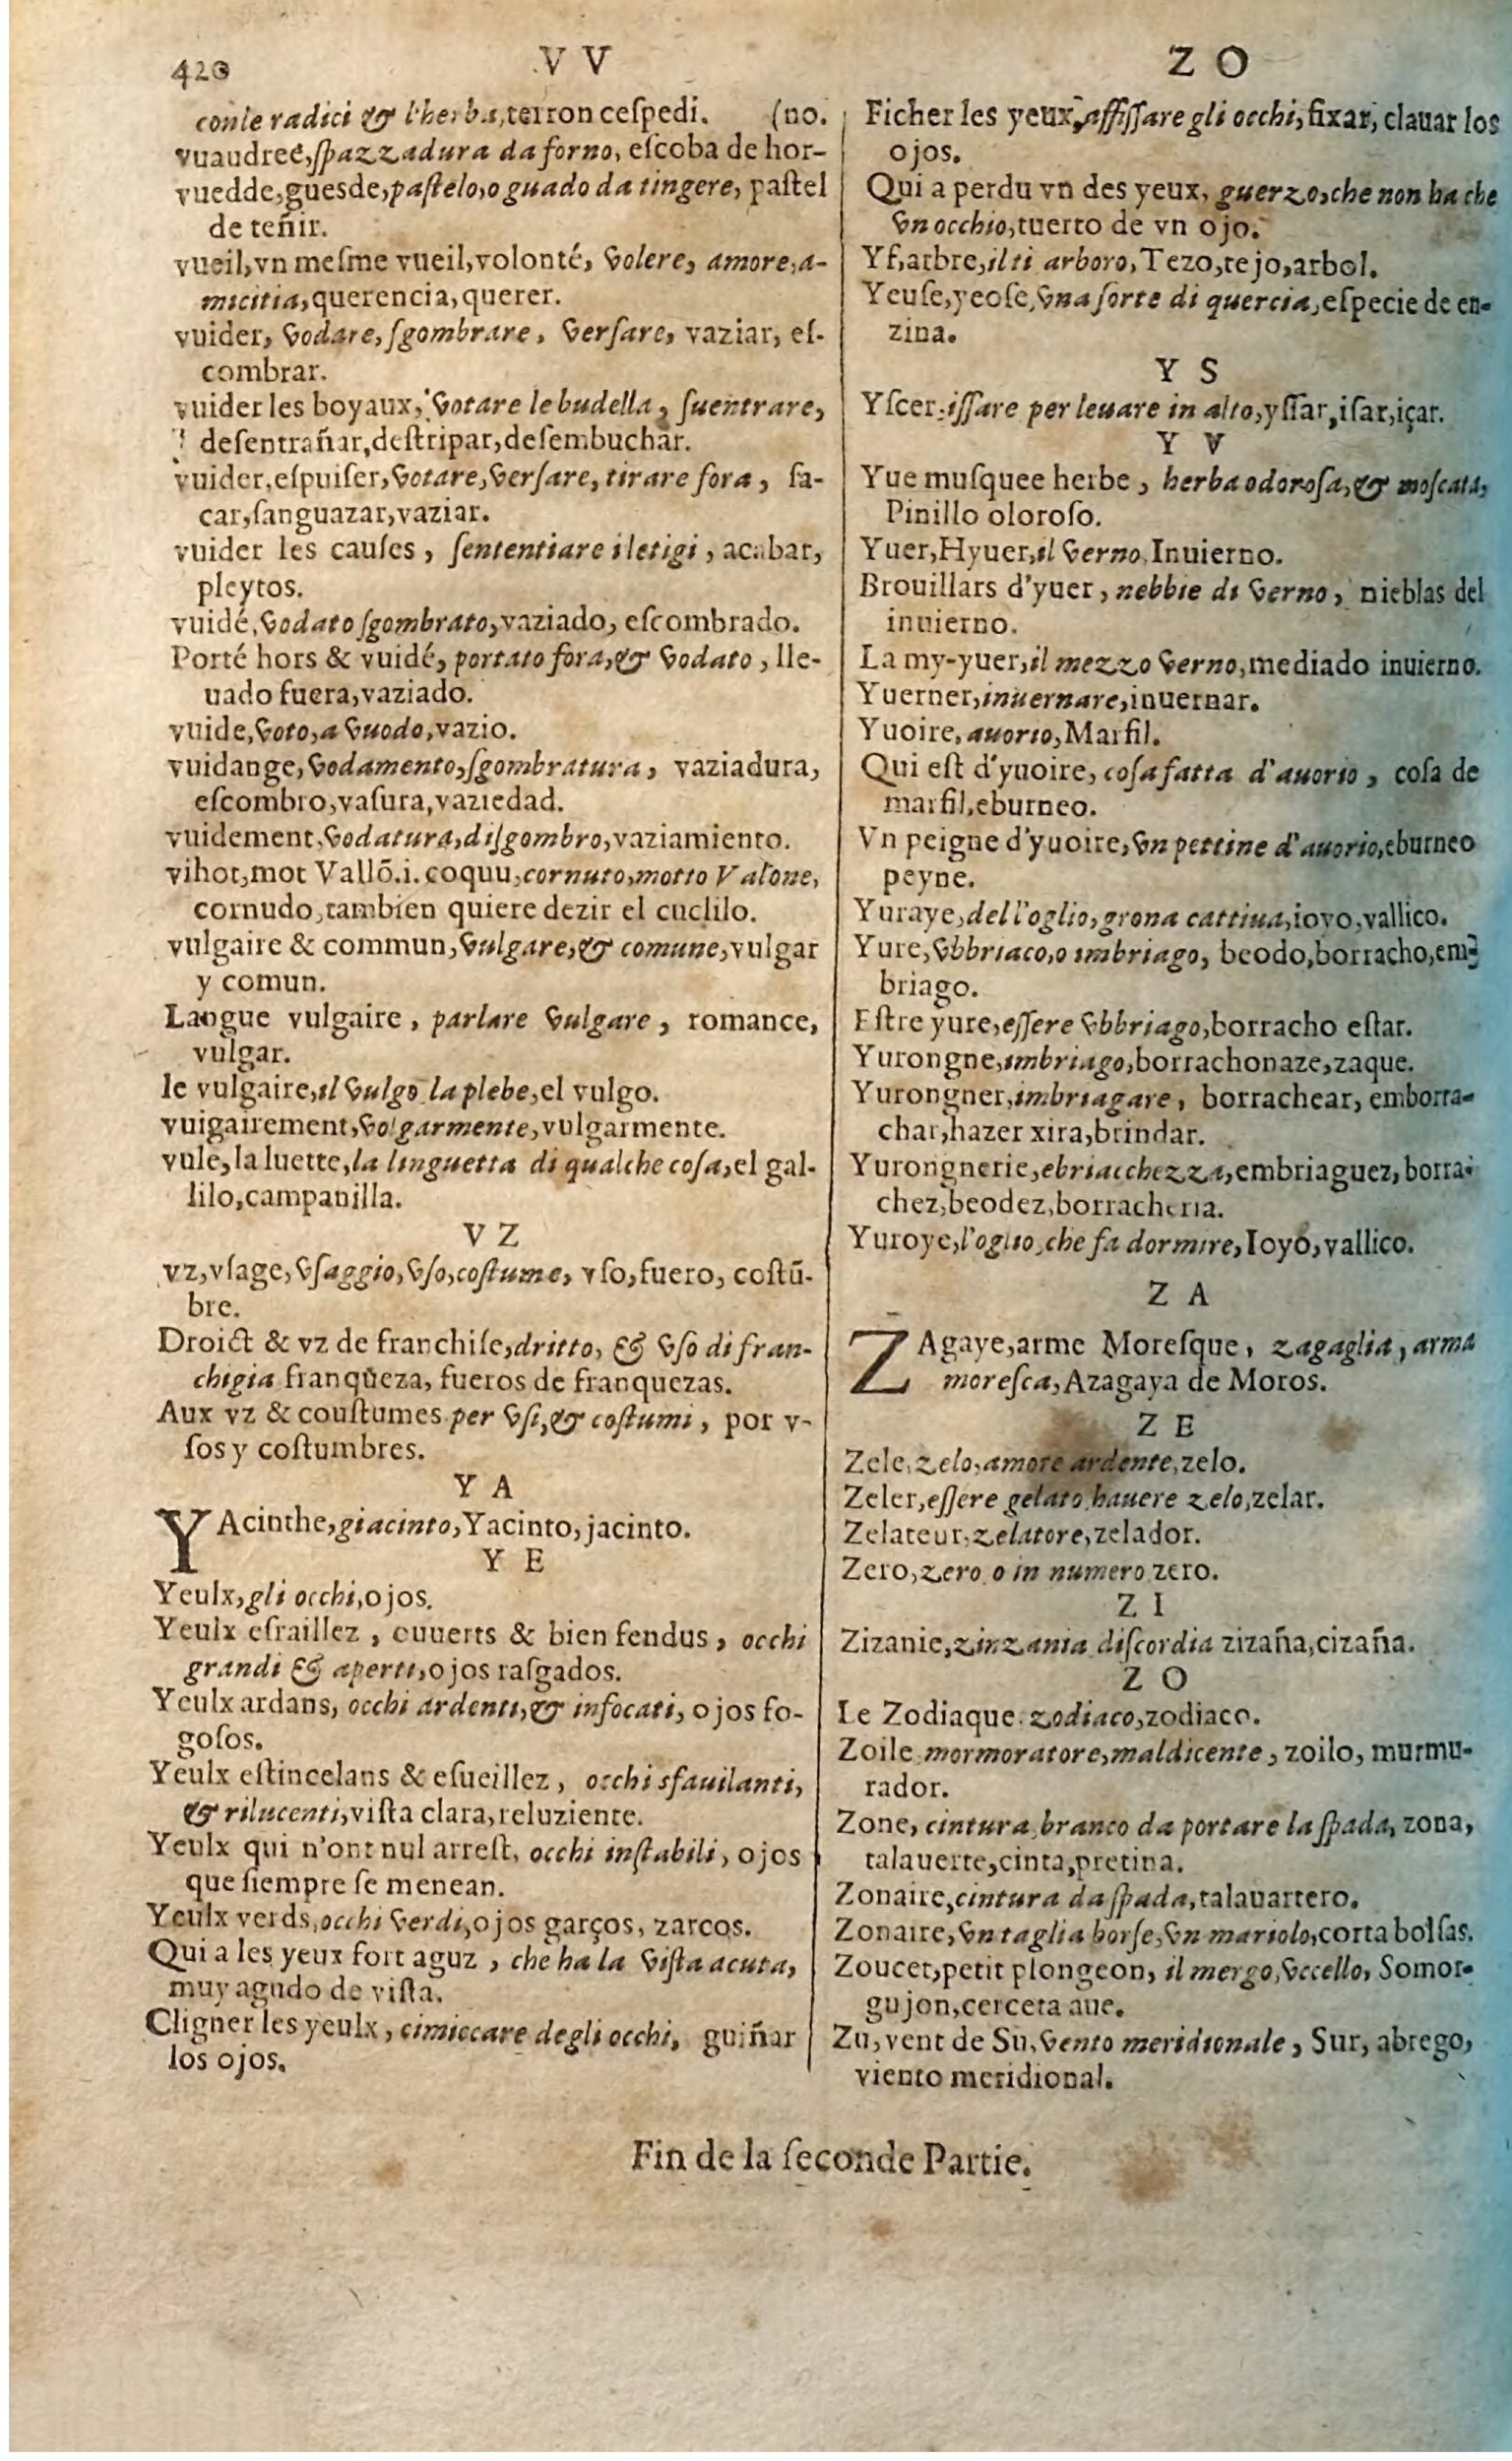 420 V V Z O
conle radici & l'herba, terron ceſpedi. (no.
vuaudreé, ſpazzadura da forno, eſcoba de hor-
vuedde, gueſde, paſtelo, o guado da tingere, paſtel
de teñir.
vueil, vn meſme vueil, volonté, volere, amore, a-
micitia, querencia, querer.
vuider, vodare, ſgombrare, verſare, vaziar, eſ-
combrar.
vuider les boyaux, votare le budella, ſuentrare,
deſentrañar, deſtripar, deſembuchar.
vuider, eſpuiſer, votare, verſare, tirare fora, ſa-
car, ſanguazar, vaziar.
vuider les cauſes, ſententiare i letigi, acabar,
pleytos.
vuidé, vodato ſgombrato, vaziado, eſcombrado.
Porté hors & vuidé, portato fora, & vodato, lle-
uado fuera, vaziado.
vuide, voto, a vuodo, vazio.
vuidange, vodamento, ſgombratura, vaziadura,
eſcombro, vaſura, vaziedad.
vuidement, vodatura, diſgombro, vaziamiento.
vihot, mot Vallõ. i. coquu, cornuto, motto Valone,
cornudo, tambien quiere dezir el cuclilo.
vulgaire & commun, vulgare, & comune, vulgar
y comun.
Langue vulgaire, parlare vulgare, romance,
vulgar.
le vulgaire, il vulgo la plebe, el vulgo.
vuigairement, volgarmente, vulgarmente.
vule, la luette, la linguetta di qualche coſa, el gal-
lilo, campanilla.
V Z
vz, vſage, vſaggio, vſo, coſtume, vſo, fuero, coſtũ-
bre.
Droict & vz de franchiſe, dritto, & vſo di fran-
chigia franqũeza, fueros de franquezas.
Aux vz & couſtumes per vſi, & coſtumi, por v-
ſos y coſtumbres.
Y A
YAcinthe, giacinto, Yacinto, jacinto.
Y E
Yeulx, gli occhi, ojos.
Yeulx eſraillez, ouuerts & bien fendus, occhi
grandi & aperti, ojos raſgados.
Yeulx ardans, occhi ardenti, & infocati, ojos fo-
goſos.
Yeulx eſtincelans & eſueillez, occhi sfauilanti,
& rilucenti, viſta clara, reluziente.
Yeulx qui n'ont nul arreſt, occhi inſtabili, ojos
que ſiempre ſe menean.
Yeulx verds, occhi verdi, ojos garços, zarcos.
Qui a les yeux fort aguz, che ha la viſta acuta,
muy agudo de viſta.
Cligner les yeulx, cimiccare degli occhi, guiñar
los ojos.
Ficher les yeux, affiſſare gli occhi, fixar, clauar los
ojos.
Qui a perdu vn des yeux, guerzo, che non ha che
vn occhio, tuerto de vn ojo.
Yf, arbre, il ti arboro, Tezo, tejo, arbol.
Yeuſe, yeoſe, vna ſorte di quercia, eſpecie de en-
zina.
Y S
Yſcer, iſſare per leuare in alto, yſſar, iſar, içar.
Y V
Yue muſquee herbe, herba odoroſa, & moſcata,
Pinillo oloroſo.
Yuer, Hyuer, il verno, Inuierno.
Brouillars d'yuer, nebbie di verno, nieblas del
inuierno.
La my-yuer, il mezzo verno, mediado inuierno.
Yuerner, inuernare, inuernar.
Yuoire, auorio, Marfil.
Qui eſt d'yuoire, coſa fatta d'auorio, coſa de
marfil, eburneo.
Vn peigne d'yuoire, vn pettine d'auorio, eburneo
peyne.
Yuraye, dell'oglio, grona cattiua, ioyo, vallico.
Yure, vbbriaco, o imbriago, beodo, borracho, em-
briago.
Eſtre yure, eſſere vbbriago, borracho eſtar.
Yurongne, imbriago, borrachonaze, zaque.
Yurongner, imbriagare, borrachear, emborra-
char, hazer xira, brindar.
Yurongnerie, ebriacchezza, embriaguez, borra-
chez, beodez, borracheria.
Yuroye, l'oglio, che fa dormire, Ioyo, vallico.
Z A
ZAgaye, arme Moreſque, zagaglia, arma
moreſca, Azagaya de Moros.
Z E
Zele, zelo, amore ardente, zelo.
Zeler, eſſere gelato hauere zelo, zelar.
Zelateur, zelatore, zelador.
Zero, zero o in numero zero.
Z I
Zizanie, zinzania diſcordia zizaña, cizaña.
Z O
Le Zodiaque. zodiaco, zodiaco.
Zoile mormoratore, maldicente, zoilo, murmu-
rador.
Zone, cintura, branco da portare la ſpada, zona,
talauerte, cinta, pretina.
Zonaire, cintura da ſpada, talauartero.
Zonaire, vn taglia borſe, vn mariolo, corta bolſas.
Zoucet, petit plongeon, il mergo, vccello, Somor-
gujon, cerceta aue.
Zu, vent de Su, vento meridionale, Sur, abrego,
viento meridional.
Fin de la ſeconde Partie.